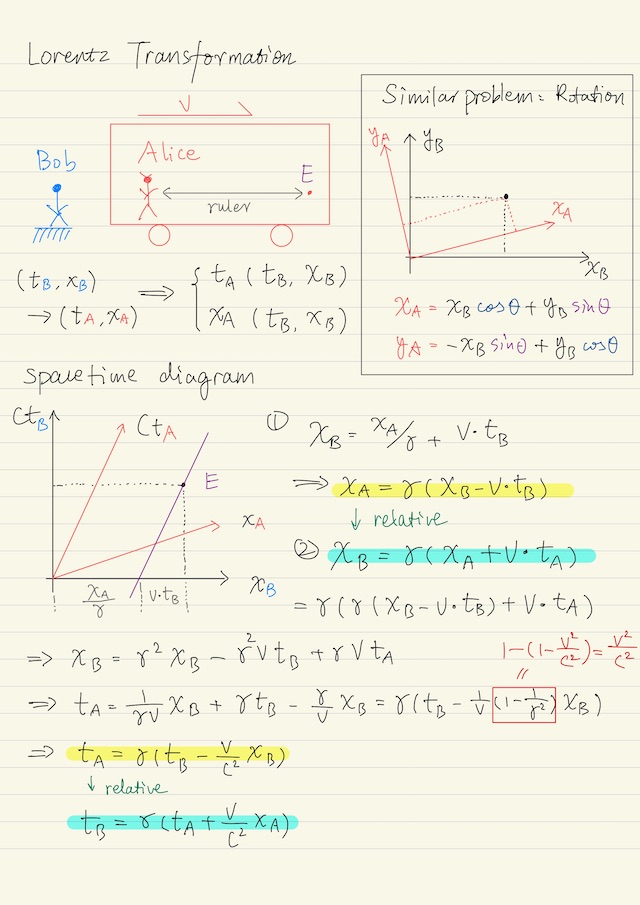 Lorentz Transformation
V
Bob
Alice
E
ruler
(t_B, x_B)
→ (t_A, x_A)
⟹ { t_A (t_B, x_B)
x_A (t_B, x_B)
Similar problem: Rotation
y_A
y_B
x_A
x_B
x_A = x_B cosθ + y_B sinθ
y_A = -x_B sinθ + y_B cosθ
spacetime diagram
Ct_B
Ct_A
E
x_A
x_B
x_A/γ
V·t_B
① x_B = x_A/γ + V·t_B
⟹ x_A = γ(x_B - V·t_B)
↓ relative
② x_B = γ(x_A + V·t_A)
= γ(γ(x_B - V·t_B) + V·t_A)
⟹ x_B = γ² x_B - γ² V t_B + γ V t_A
1-(1-V²/C²) = V²/C²
〃
⟹ t_A = 1/γV x_B + γ t_B - γ/V x_B = γ(t_B - 1/V (1-1/γ²) x_B)
⟹ t_A = γ(t_B - V/C² x_B)
↓ relative
t_B = γ(t_A + V/C² x_A)